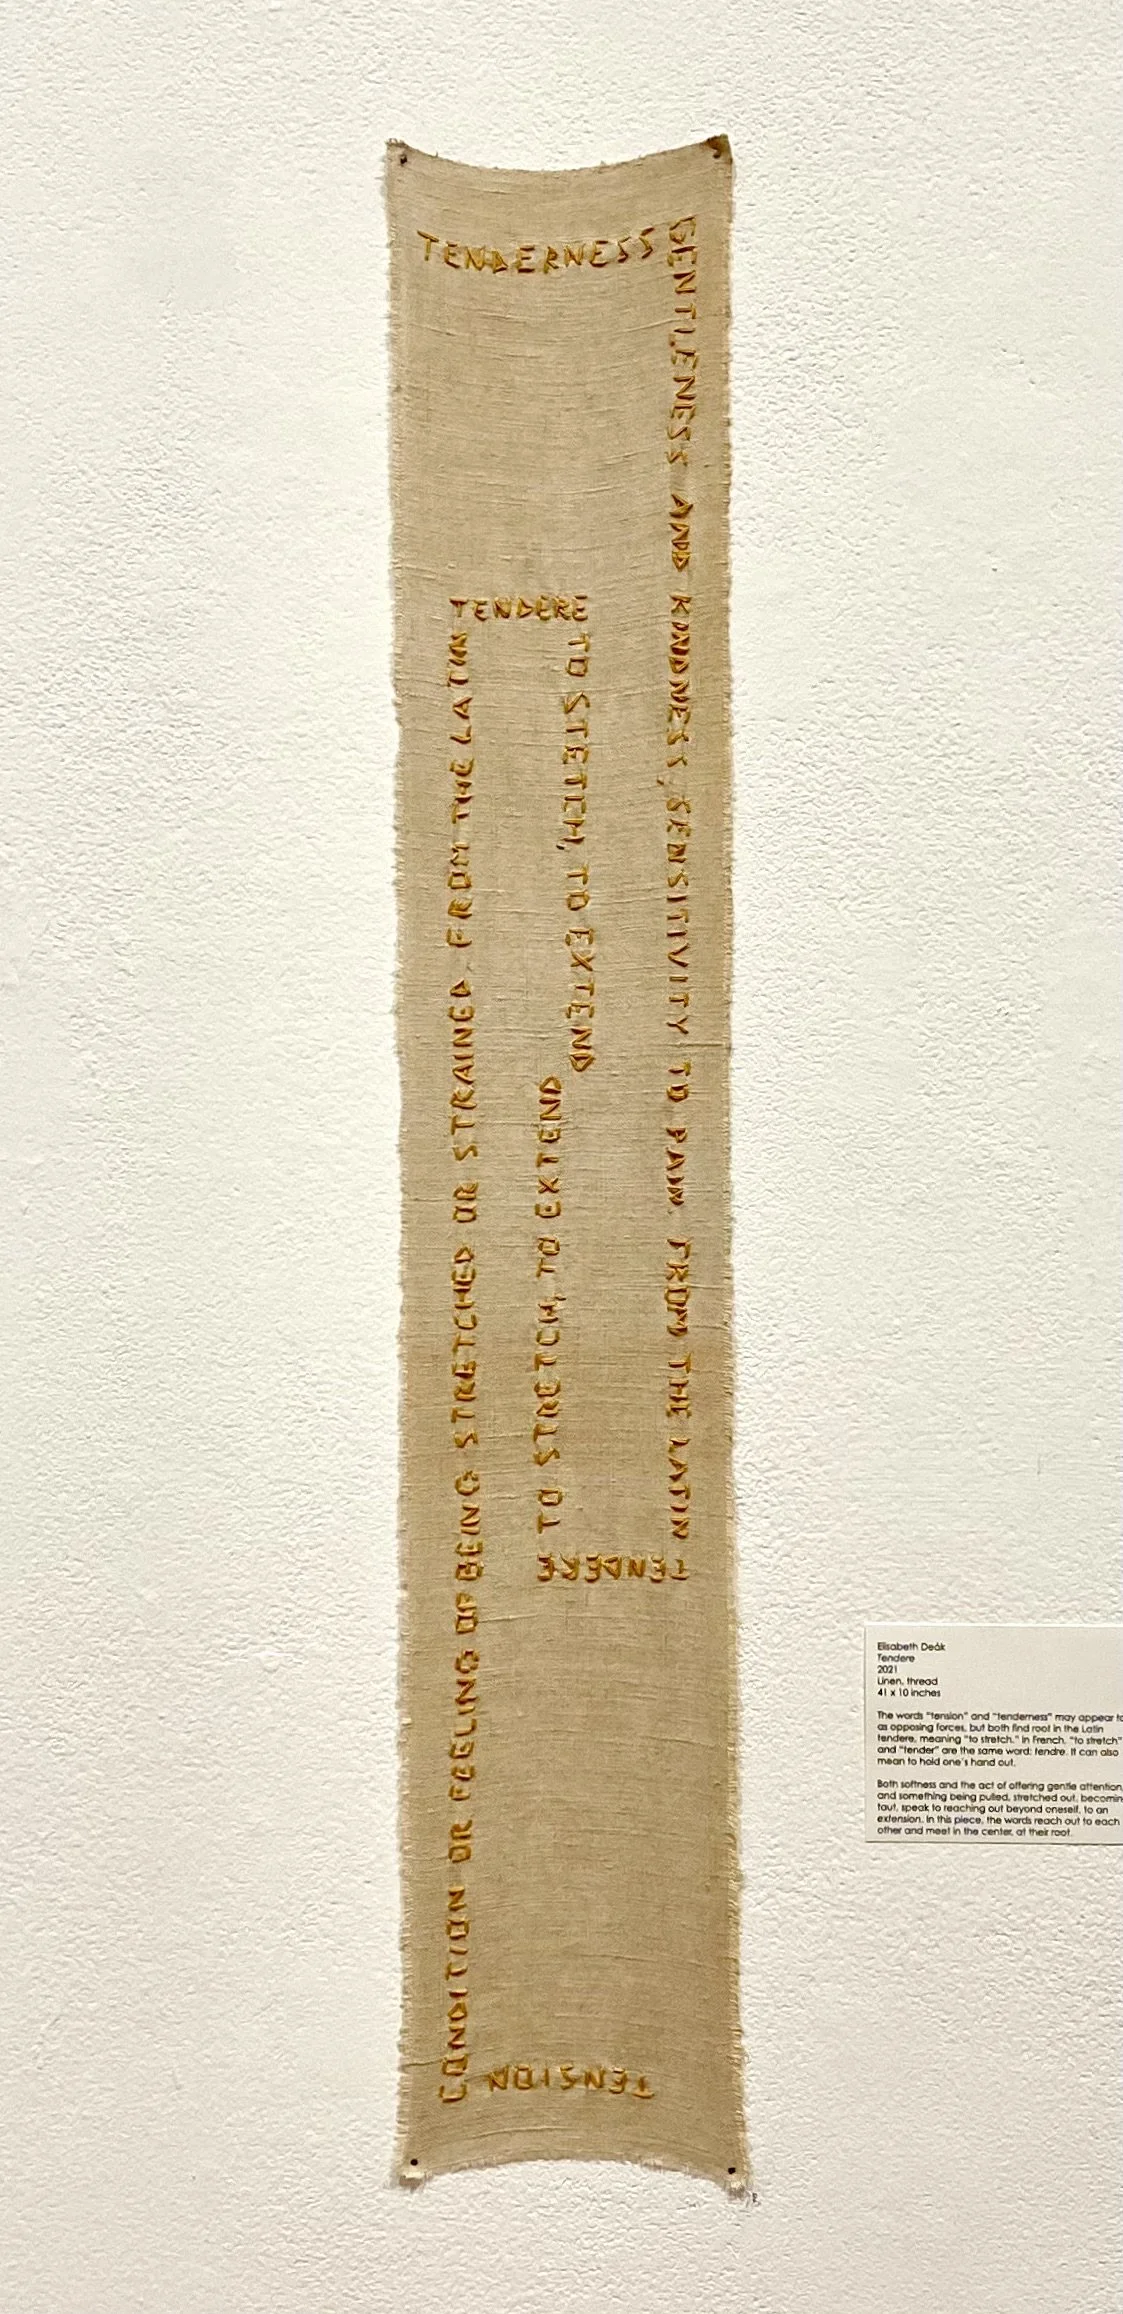 TENDERNESS
GENTLENESS AND KINDNESS, SENSITIVITY TO PAIN. FROM THE LATIN
TENDERE
TO STRETCH, TO EXTEND
TENSION
CONDITION OR FEELING OF BEING STRETCHED OR STRAINED. FROM THE LATIN
TENDERE
TO STETCH, TO EXTEND
Elisabeth Deák
Tendere
2021
Linen, thread
41 x 10 inches
The words "tension" and "tenderness" may appear to
as opposing forces, but both find root in the Latin
tendere, meaning "to stretch." In French, "to stretch"
and "tender" are the same word: tendre. It can also
mean to hold one's hand out.
Both softness and the act of offering gentle attention,
and something being pulled, stretched out, becomin
taut, speak to reaching out beyond oneself, to an
extension. In this piece, the words reach out to each
other and meet in the center, at their root.